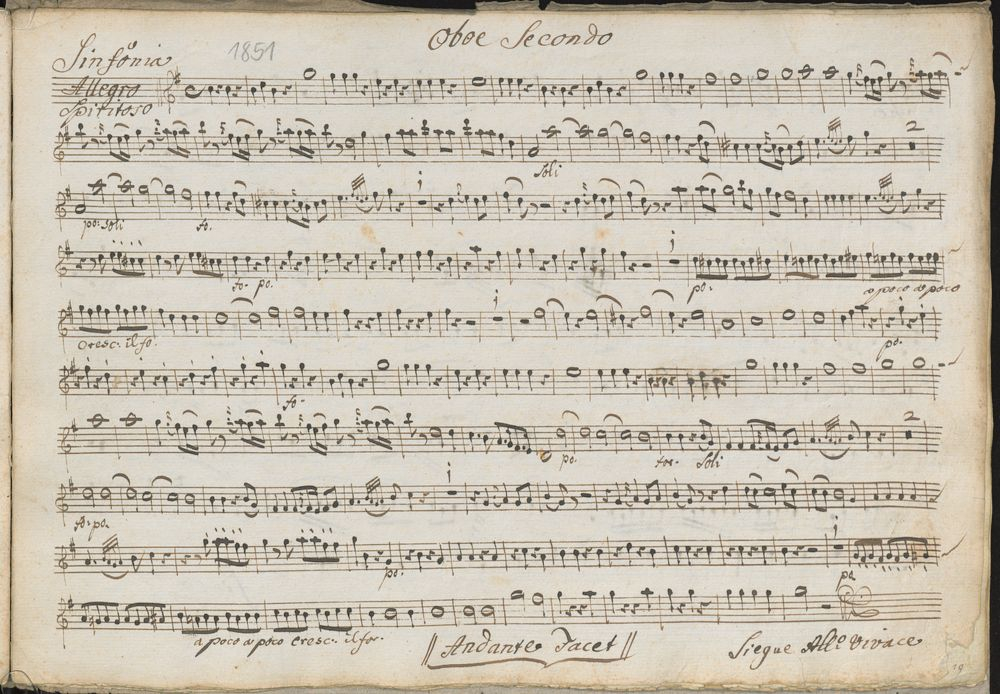 Oboe Secondo
Sinfonia 1851
Allegro
Spiritoso
2
Soli
po: soli fo. 1
fo. po. 1 po: a poco a poco
cresc. il fo. 1 po.
fo.
po. for. Soli 2
fo. po. 1
po. 1 po
a poco a poco cresc. il for. Andante Tacet Siegue All.o Vivace
19